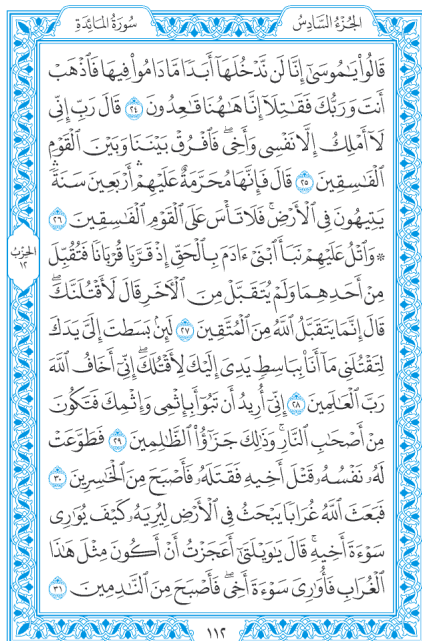 الجُزْءُ السَّادِسُ
سُورَةُ المَائِدَةِ
قَالُواْ يَٰمُوسَىٰٓ إِنَّا لَن نَّدۡخُلَهَآ أَبَدٗا مَّا دَامُواْ فِيهَا فَٱذۡهَبۡ
أَنتَ وَرَبُّكَ فَقَٰتِلَآ إِنَّا هَٰهُنَا قَٰعِدُونَ ٢٤ قَالَ رَبِّ إِنِّي
لَآ أَمۡلِكُ إِلَّا نَفۡسِي وَأَخِيۖ فَٱفۡرُقۡ بَيۡنَنَا وَبَيۡنَ ٱلۡقَوۡمِ
ٱلۡفَٰسِقِينَ ٢٥ قَالَ فَإِنَّهَا مُحَرَّمَةٌ عَلَيۡهِمۡۛ أَرۡبَعِينَ سَنَةٗۛ
يَتِيهُونَ فِي ٱلۡأَرۡضِۚ فَلَا تَأۡسَ عَلَى ٱلۡقَوۡمِ ٱلۡفَٰسِقِينَ ٢٦
۞ وَٱتۡلُ عَلَيۡهِمۡ نَبَأَ ٱبۡنَيۡ ءَادَمَ بِٱلۡحَقِّ إِذۡ قَرَّبَا قُرۡبَانٗا فَتُقُبِّلَ
مِنۡ أَحَدِهِمَا وَلَمۡ يُتَقَبَّلۡ مِنَ ٱلۡأٓخَرِ قَالَ لَأَقۡتُلَنَّكَۖ
قَالَ إِنَّمَا يَتَقَبَّلُ ٱللَّهُ مِنَ ٱلۡمُتَّقِينَ ٢٧ لَئِنۢ بَسَطتَ إِلَيَّ يَدَكَ
لِتَقۡتُلَنِي مَآ أَنَا۠ بِبَاسِطٖ يَدِيَ إِلَيۡكَ لِأَقۡتُلَكَۖ إِنِّيٓ أَخَافُ ٱللَّهَ
رَبَّ ٱلۡعَٰلَمِينَ ٢٨ إِنِّيٓ أُرِيدُ أَن تَبُوٓأَ بِإِثۡمِي وَإِثۡمِكَ فَتَكُونَ
مِنۡ أَصۡحَٰبِ ٱلنَّارِۚ وَذَٰلِكَ جَزَٰٓؤُاْ ٱلظَّٰلِمِينَ ٢٩ فَطَوَّعَتۡ
لَهُۥ نَفۡسُهُۥ قَتۡلَ أَخِيهِ فَقَتَلَهُۥ فَأَصۡبَحَ مِنَ ٱلۡخَٰسِرِينَ ٣٠
فَبَعَثَ ٱللَّهُ غُرَابٗا يَبۡحَثُ فِي ٱلۡأَرۡضِ لِيُرِيَهُۥ كَيۡفَ يُوَٰرِي
سَوۡءَةَ أَخِيهِۚ قَالَ يَٰوَيۡلَتَىٰٓ أَعَجَزۡتُ أَنۡ أَكُونَ مِثۡلَ هَٰذَا
ٱلۡغُرَابِ فَأُوَٰرِيَ سَوۡءَةَ أَخِيۖ فَأَصۡبَحَ مِنَ ٱلنَّٰدِمِينَ ٣١
الحِزْبُ
١٢
١١٢